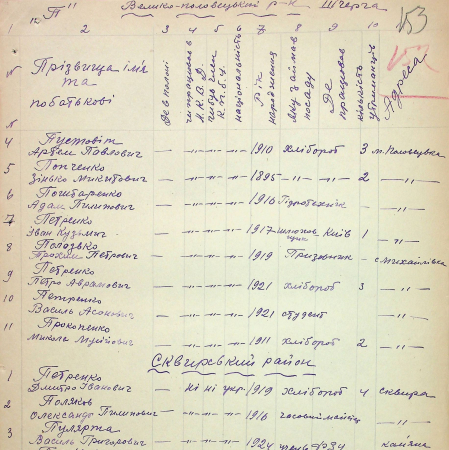 "П" Велико-половецький р-н Шверга 153
1 2 3 4 5 6 7 8 9 10
№ Прізвища ім'я та побатькові Де в полоні працював Н.К.В.Д. Національність Рік народження Яку займав посаду Де працював кількість утриманців Адреса
4 Пустовіт
Артем Павлович — —"— —"— —"— 1910 хлібороб 3 м. Половецька
5 Попченко
Зінько Микитович — —"— —"— —"— 1895 —"— — 2 —"—
6 Пошtаренко
Адам Пилипович — —"— —"— —"— 1916 Гідротехнік — —"—
7 Петренко
Іван Кузьмич — —"— —"— —"— 1917 Київ 1 —"—
8 Полозько
Трохим Петрович — —"— —"— —"— 1919 Призовник — с Михайлівка
9 Петренко
Петро Аврамович — —"— —"— —"— 1921 хлібороб 3 —"—
10 Петренко
Василь — —"— —"— —"— 1921 студент —"—
11 Прокопенко
Микола — —"— —"— —"— 1911 хлібороб 2 —"—
Сквирський район
1 Петренко
Дмитро Іванович — ні ні укр. 1919 хлібороб 4 сквира
2 Поляков
Олександр Пилипович — —"— —"— —"— 1916 часовий —"—
3 Пулярта
Василь Григорович — —"— —"— —"— 1924 учень ФЗУ